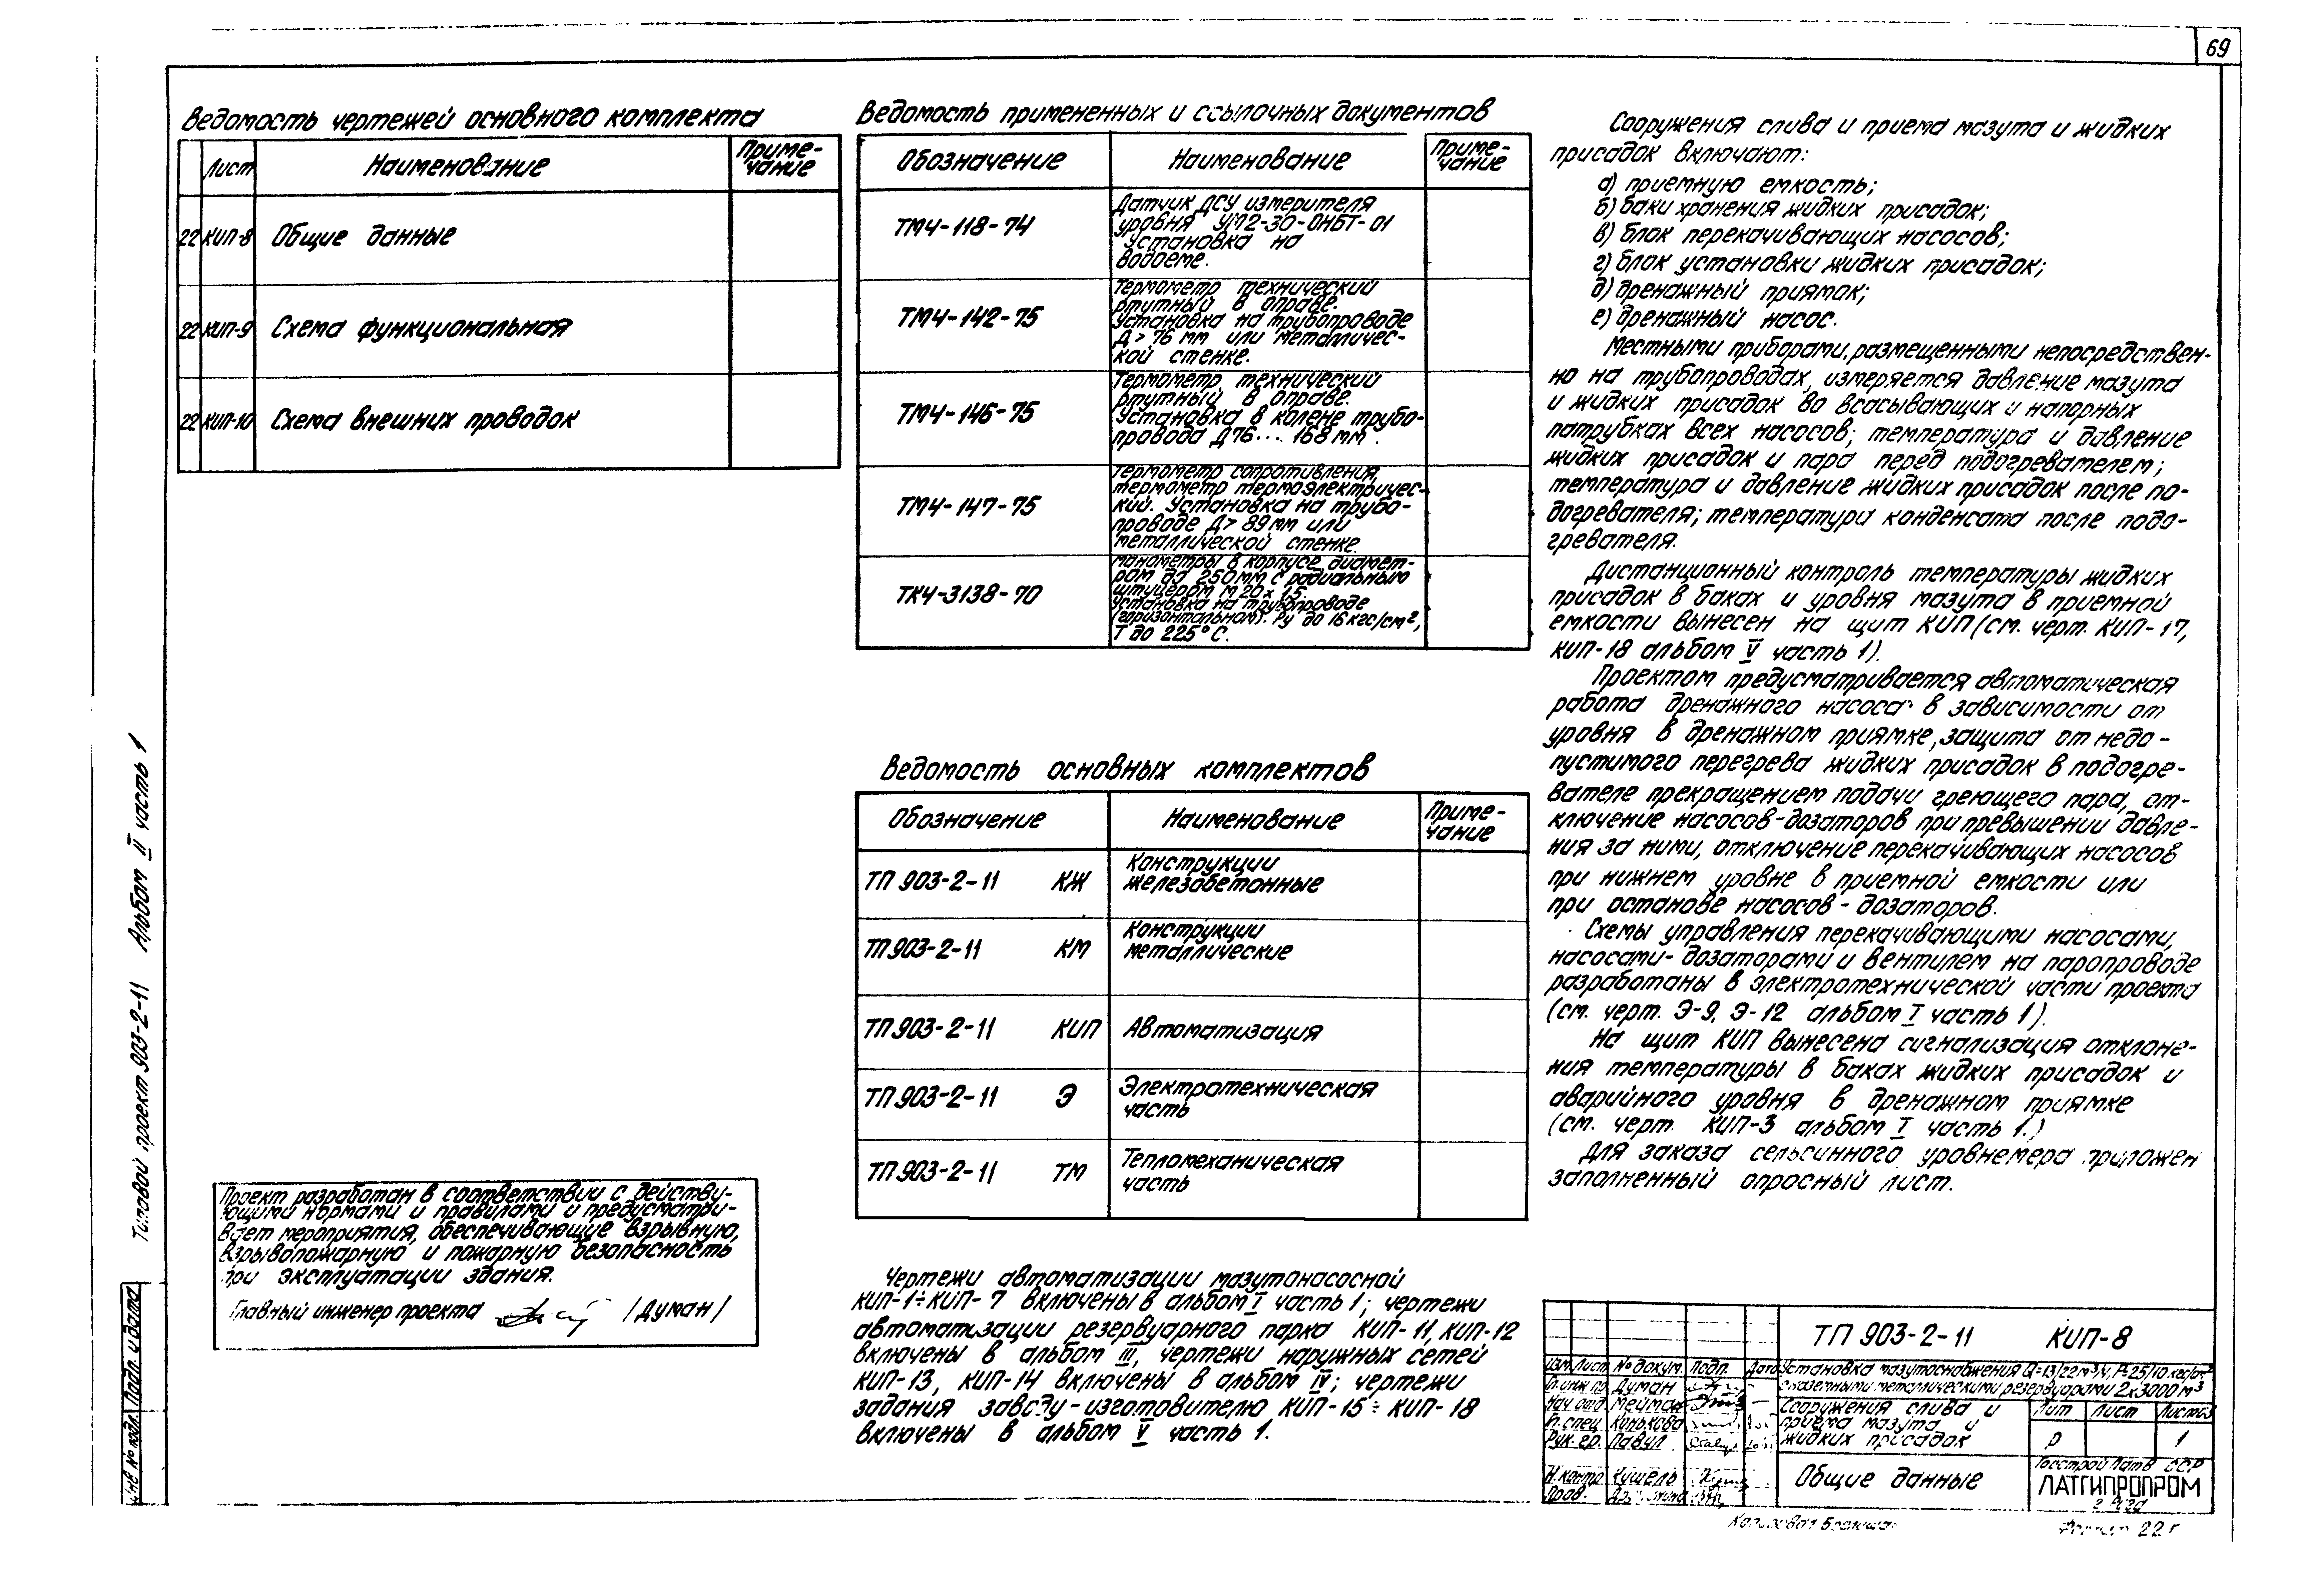 69
Ведомость чертежей основного комплекта
Лист Наименование Приме-
чание
22 КИП-8 Общие данные
22 КИП-9 Схема функциональная
22 КИП-10 Схема внешних проводок
Проект разработан в соответствии с действу-
ющими нормами и правилами и предусматри-
вает мероприятия, обеспечивающие взрывную,
взрывопожарную и пожарную безопасность
при эксплуатации здания.
Главный инженер проекта /Думан/
Типовой проект 903-2-11 Альбом II часть 1
Инв № подл. Подп. и дата
Ведомость примененных и ссылочных документов
Обозначение Наименование Приме-
чание
ТМ4-118-74
Датчик ДСУ измерителя
уровня УМ2-30-ОНБТ-01
Установка на
водоеме.
ТМ4-142-75
Термометр технический
ртутный в оправе.
Установка на трубопроводе
Д > 76 мм или металличес-
кой стенке.
ТМ4-146-75
Термометр технический
ртутный в оправе.
Установка в колене трубо-
провода Д76... 168 мм.
ТМ4-147-75
Термометр сопротивления,
термометр термоэлектричес-
кий. Установка на трубо-
проводе Д > 89 мм или
металлической стенке.
ТК4-3138-70
Манометры в корпусе диамет-
ром до 250 мм с радиальным
штуцером М 20 х 1,5.
Установка на трубопроводе
(горизонтальном). Ру до 16 кгс/см²,
Т до 225°С.
Ведомость основных комплектов
Обозначение Наименование Приме-
чание
ТП 903-2-11 КЖ Конструкции
железобетонные
ТП 903-2-11 КМ Конструкции
металлические
ТП 903-2-11 КИП Автоматизация
ТП 903-2-11 Э Электротехническая
часть
ТП 903-2-11 ТМ Тепломеханическая
часть
Чертежи автоматизации мазутонасосной
КИП-1÷КИП-7 включены в альбом I часть 1; чертежи
автоматизации резервуарного парка КИП-11, КИП-12
включены в альбом III, чертежи наружных сетей
КИП-13, КИП-14 включены в альбом IV; чертежи
задания заводу-изготовителю КИП-15÷КИП-18
включены в альбом V часть 1.
Сооружения слива и приема мазута и жидких
присадок включают:
а) приемную емкость;
б) баки хранения жидких присадок;
в) блок перекачивающих насосов;
г) блок установки жидких присадок;
д) дренажный приямок;
е) дренажный насос.
Местными приборами, размещенными непосредствен-
но на трубопроводах, измеряется давление мазута
и жидких присадок во всасывающих и напорных
патрубках всех насосов; температура и давление
жидких присадок и пара перед подогревателем;
температура и давление жидких присадок после по-
догревателя; температура конденсата после подо-
гревателя.
Дистанционный контроль температуры жидких
присадок в баках и уровня мазута в приемной
емкости вынесен на щит КИП (см. черт. КИП-17,
КИП-18 альбом V часть 1).
Проектом предусматривается автоматическая
работа дренажного насоса в зависимости от
уровня в дренажном приямке, защита от недо-
пустимого перегрева жидких присадок в подогре-
вателе прекращением подачи греющего пара, от-
ключение насосов-дозаторов при превышении давле-
ния за ними, отключение перекачивающих насосов
при нижнем уровне в приемной емкости или
при останове насосов-дозаторов.
Схемы управления перекачивающими насосами,
насосами-дозаторами и вентилем на паропроводе
разработаны в электротехнической части проекта
(см. черт. Э-9, Э-12 альбом I часть 1).
На щит КИП вынесена сигнализация отклоне-
ния температуры в баках жидких присадок и
аварийного уровня в дренажном приямке
(см. черт. КИП-3 альбом I часть 1.)
Для заказа сельсинного уровнемера приложен
заполненный опросный лист.
ТП 903-2-11 КИП-8
Изм. Лист № докум. Подп. Дата
Установка мазутоснабжения Q=13/22 м³/ч, Р=25/10 кгс/см²
с наземными металлическими резервуарами 2х3000 м³
Гл. инж. пр. Думан
Нач. отд. Мейман
Гл. спец. Конькова
Рук. гр. Павул
Н. контр. Кушель
Пров.
Сооружения слива и
приема мазута и
жидких присадок
Лит Лист Листов
Р 1
Общие данные
Госстрой Латв ССР
ЛАТГИПРОПРОМ
г. Рига
Копировал
Формат 22г